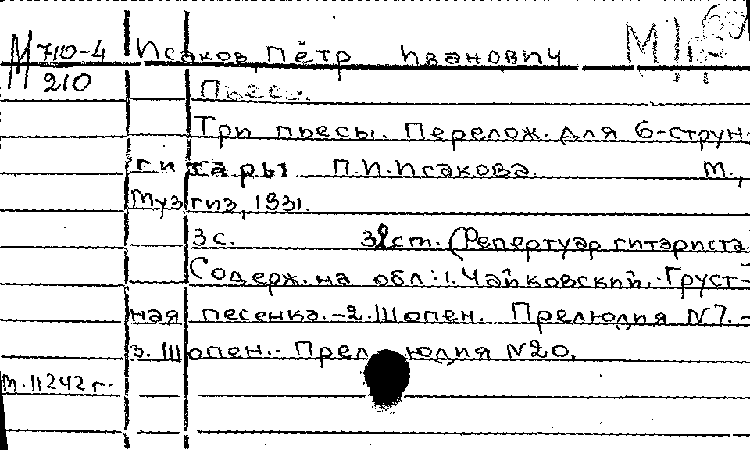 М 710-4
210
Исаков, Пётр Иванович
Пьесы.
Три пьесы. Перелож. для 6-струн.
гитары П.И. Исакова. М.,
Музгиз, 1931.
3с. 32cm. (Репертуар гитариста
Содерж. на обл: 1. Чайковский. Груст-
ная песенка.-2. Шопен. Прелюдия N7.-
3. Шопен.- Прелюдия N20.
т. 11242 г.